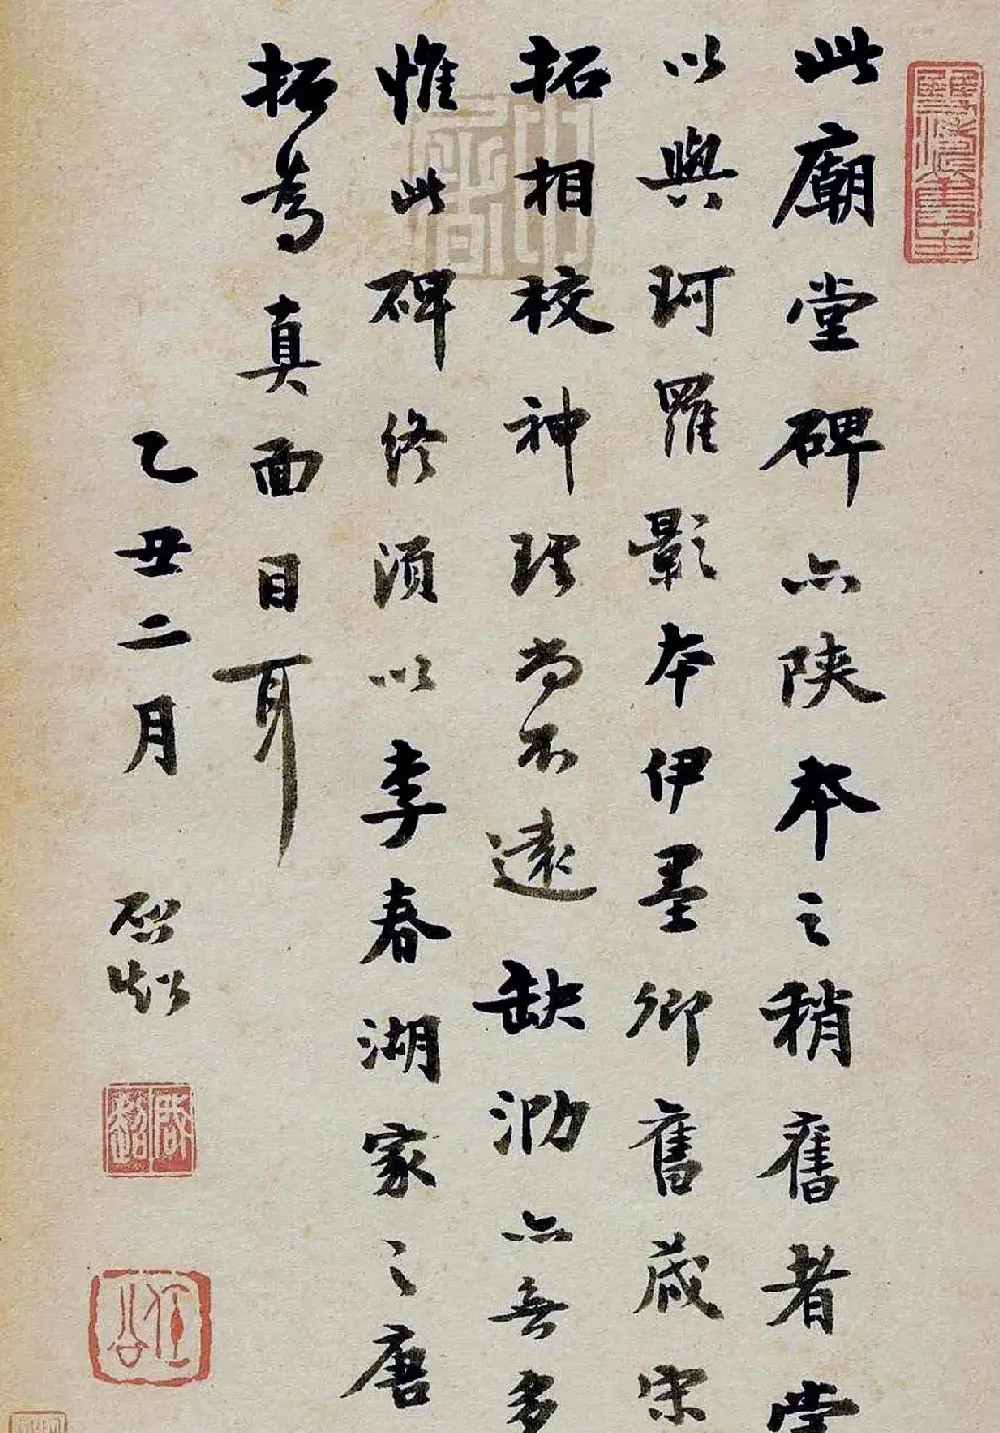 此廟堂碑亦陝本之稍舊者嘗
以與珂羅影本伊墨卿舊藏宋
拓相校神理尚不遠缺泐亦無多
惟此碑終須以李春湖家之唐
拓為真面目耳
乙丑二月 啟超
啟超
任公